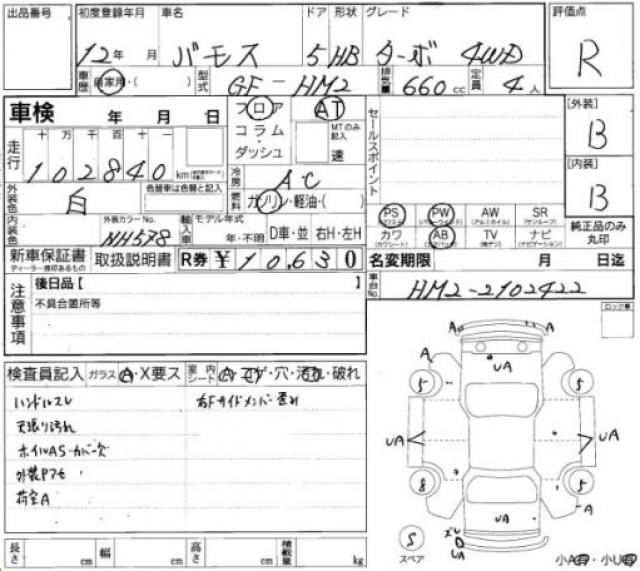 出品番号 初度登録年月 車名 ドア 形状 グレード 評価点
12年 月 バモス 5 HB ターボ 4WD R
車歴 自家用・( ) 型式 GF-HM2 排気量 660 cc 定員 4人
車検 年 月 日 フロア AT セールスポイント [外装]
十 万 千 百 十 一 コラム・ MTのみ記入 B
走行 102840 km ダッシュ 速 [内装]
冷房 AC B
外装色 白 色替車は色替と記入 燃料 ガソリン・軽油・( )
PS PW AW SR
(パワーウィンドウ) (アルミホイル) (サンルーフ)
内装色 外装カラーNo. NH578 輸入車 モデル年式 年・不明 D車・並 右H・左H
カワ AB TV ナビ 純正品のみ丸印
(カワシート) (エアバッグ) (ナビゲーション)
新車保証書 取扱説明書 R券 ¥10,630 名変期限 月 日迄
ディーラー捺印あるもの
車台No. HM2-2102422
注意事項 後日品【 】
不具合箇所等
ロック車
検査員記入 ガラス A・X要ス 室内シート A・コゲ・穴・汚れ・破れ
ハンドルスレ 右Fサイドメンバー歪み
天張り汚れ
ホイルAS・カバー欠
外装Pアセ
荷室A
A A
A UA
5 5
UA UA
8 5
UA A
S ズレ
スペア UA
長さ cm 幅 cm 高さ cm 積載量 kg
小A・小U